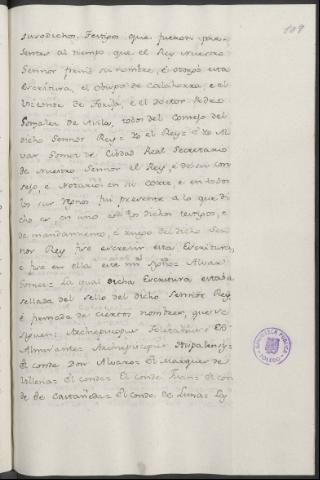 109
susodichos. Testigos que fueron pre-
sentes al tiempo que el Rey nuestro
Sennor firmó su nombre, é otorgó esta
Escritura, el obispo de Calahorra, e el
Vizconde de Torija, e el doctor Pedro
Gonzalez de Avila, todos del Consejo del
dicho Sennor Rey= Yo el Rey= é Yo Al
var Gomez de Ciudad Real Secretario
de Nuestro Sennor el Rey, é de su con
sejo, é Notario en su corte, e en todos
los sus regnos fui presente a lo que di
cho es, en uno con los dichos testigos, e
de mandamiento, é ruego del dicho Sen
nor Rey fice escrevir esta Escritura,
e fice en ella este mi signo= Alvar
Gomez= La qual dicha Escritura estaba
sellada del sello del dicho Sennor Rey,
é firmada de ciertos nombres, que se
siguen: Archiepiscopus Toletanus= El
Almirante= Archiepiscopus Ispalensis=
El conde Don Alvaro= El Marques de
Villena= El conde= El conde Juan= El con
de de Castañeda= El conde de Luna= Ly
BIBLIOTECA PUBLICA
TOLEDO